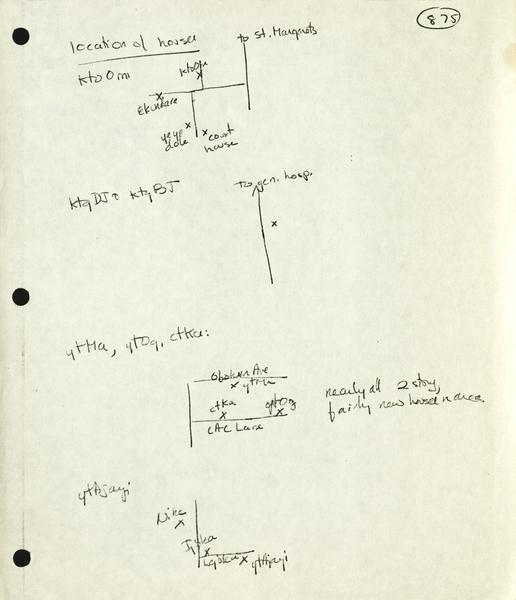 875
location of houses
to St. Margrets
ktoOmi
ktoOmi
Ekundare
yeye
dola
court
house
ktqDJ & ktqBJ
to gen. hosp.
ytMa, ytOg, ctka:
Obokun Ave
ytMa
ctka
ytOg
CAC Lane
nearly all 2 story,
fairly new houses in area.
ytAjayi
Nike
ytAjayi